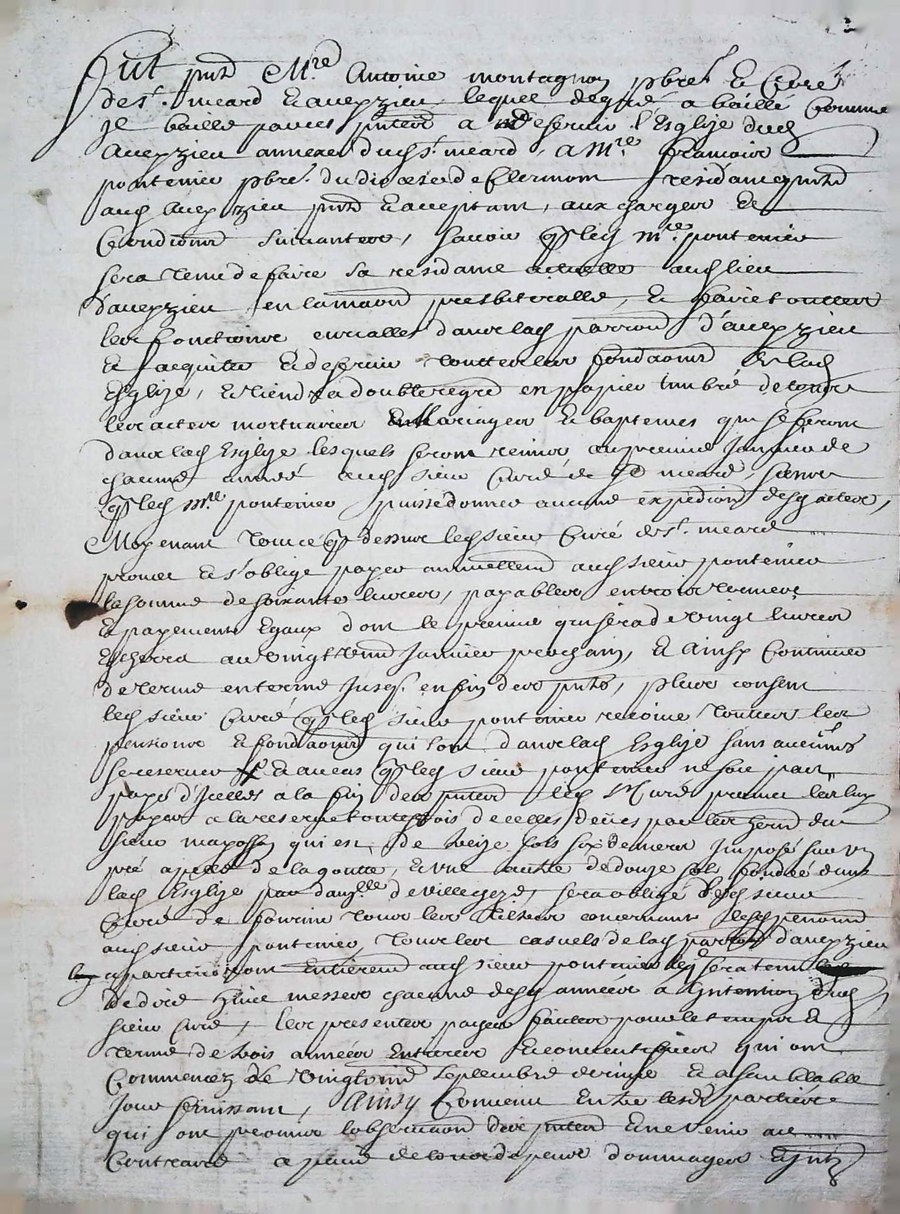 Fut pnt Mre Antoine montagnon pbre & Curé
de st. meard & aveyzieu, lequel de gré a baillé comme
Je baille par ces pntes a desservir l'Esglize dud
Aveyzieu annexe dud st. meard, a Mre francois
pontenier pbre. du diocese de Clermont residant
aud Aveyzieu pnt & acceptant, aux charges &
Conditions suivantes, savoir q led Mre. pontenier
sera tenu de faire sa residance actuelle aud lieu
d'aveyzieu en la maison presbiteralle, & faire touttes
les fonctions curialles dans lad parroisse d'aveyzieu
& acquitter & deservir touttes les fondaons de lad
Esglize, & tiendra double regre en papier timbré de tous
les actes mortuaires mariages & baptemes qui se feront
dans lad Esglize lesquels seront remis au premier Janvier de
chacune année aud sieur Curé de St meard, sans
q led Mre pontenier puisse donner aucune expedion desd actes,
Moyenant tout ce q dessus led sieur Curé de st. meard
promet & s'oblige payer annuellemt aud sieur pontenier
la somme de soixante livres, payables en trois termes
& payements Egaux dont le premier qui sera de vingt livres
Escherra au vingt Janvier prochain, & ainsy Continuer
de terme en terme Jusq. en fin des pntes, plus consent
led sieur Curé q led sieur pontenier retire touttes les
pensions & fondaons qui sont dans lad Esglize sans aucune
se reserver & au cas q led sieur pontenier ne soit pas
payé d'Icelles a la fin des pntes led sr Curé promet les luy
payer a la reserve touttesfois de celles deües par les
sieur qui est de seize sols six deniers Imposé sur un
pré apellé de la goutte, & une autre de douze sols fondée dans
lad Esglize par danlle de villecheze, sera obligé led sieur
Curé de fournir tous les tiltres concernant lesd pensions
aud sieur pontenier, tous les casuels de lad parroisse d'aveyzieu
apartiendront entierem aud sieur pontenier leq sera tenu
de dire huict messes chacune desd années a l'Intention dud
sieur Curé, les presentes pactes faittes pour le temps &
terme de trois années Entieres & consecutives qui ont
Commencez le vingt septembre dernier & a semblable
Jour finissant, Ainsy Convenu Entre lesd parties
qui ont promis l'observaon des pntes & ne venir au
Contraire a peine de tous despens dommages & Jntz